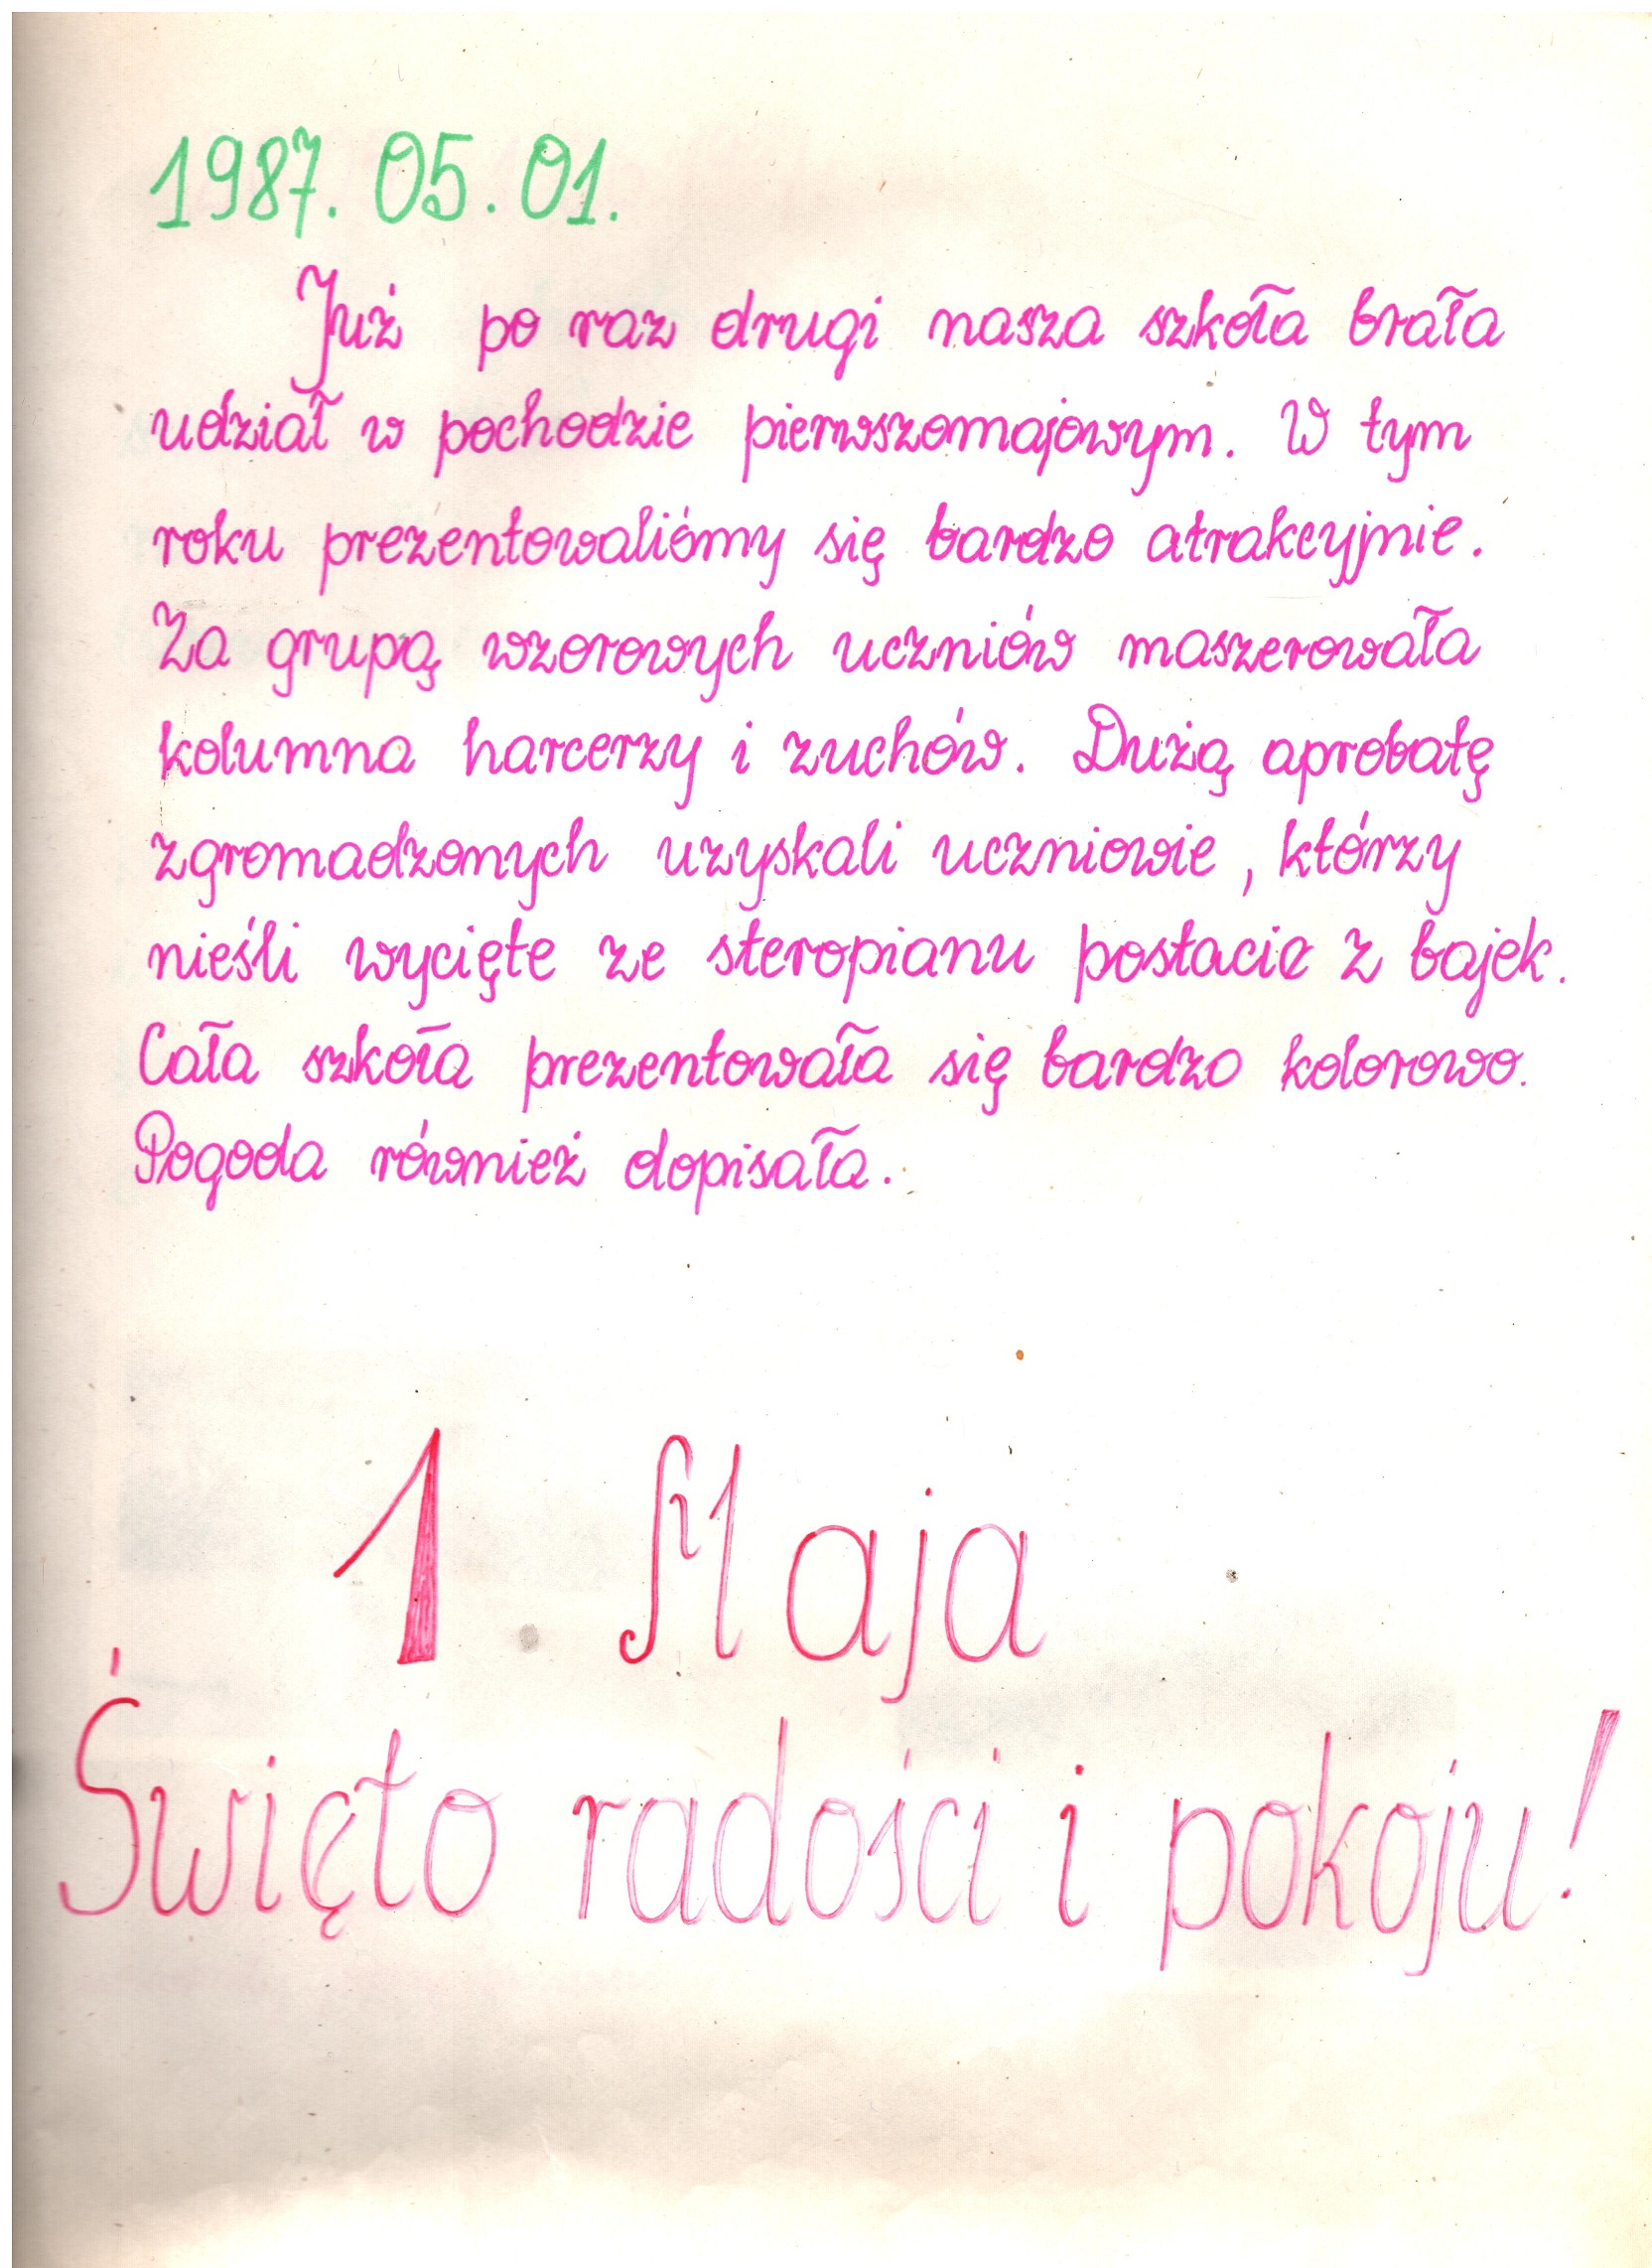 1987.05.01.
Już po raz drugi nasza szkoła brała
udział w pochodzie pierwszomajowym. W tym
roku prezentowaliśmy się bardzo atrakcyjnie.
Za grupą wzorowych uczniów maszerowała
kolumna harcerzy i zuchów. Dużą aprobatę
zgromadzonych uzyskali uczniowie, którzy
nieśli wycięte ze steropianu postacie z bajek.
Cała szkoła prezentowała się bardzo kolorowo.
Pogoda również dopisała.
1 Maja
Święto radości i pokoju!